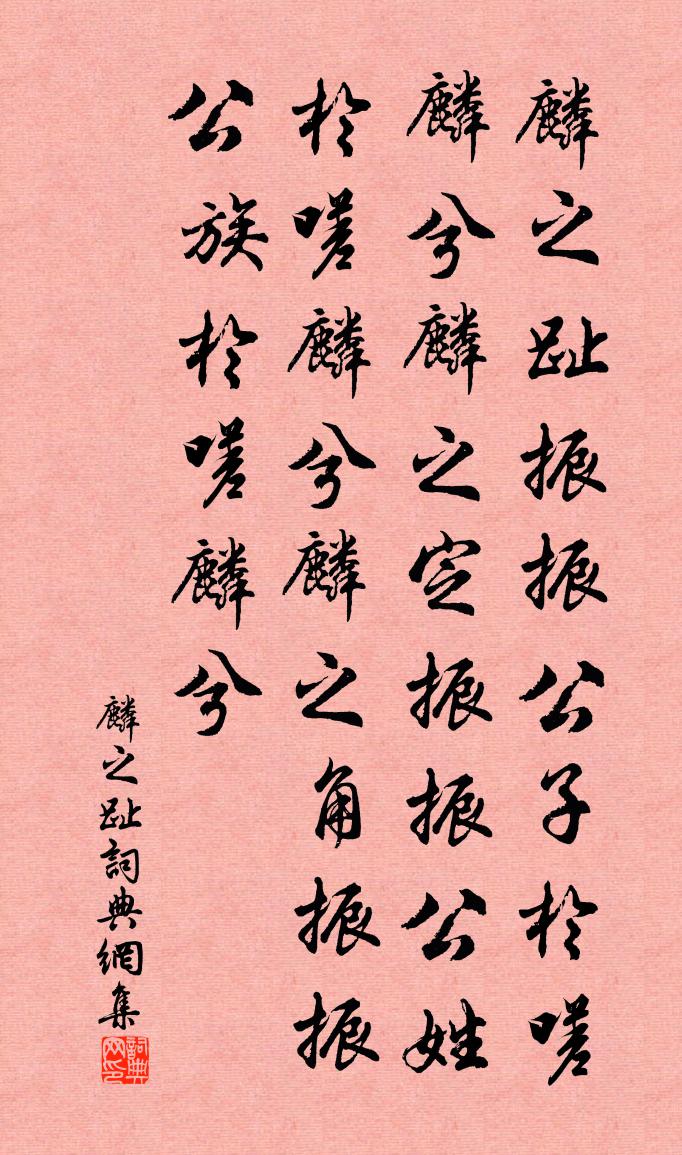 麟之趾振振公子於嗟
麟兮麟之定振振公姓
於嗟麟兮麟之角振振
公族於嗟麟兮
麟之趾詞典網集
詞典网印